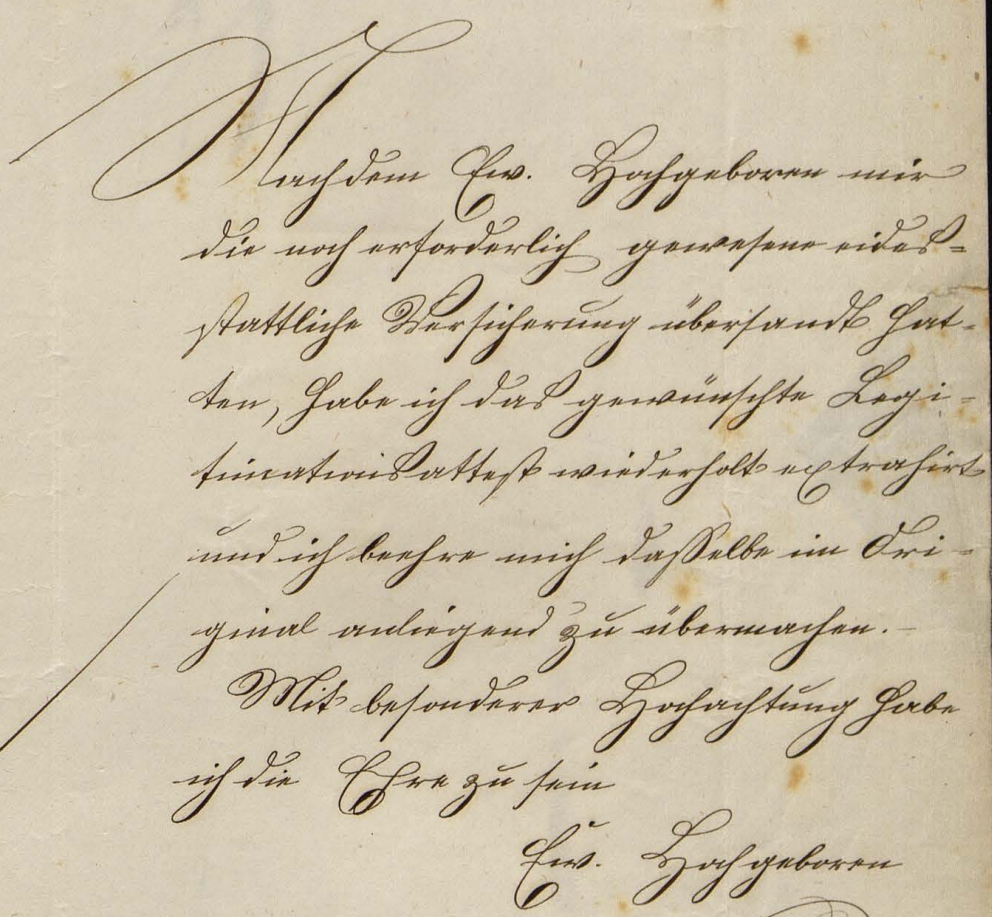 Nachdem Ew. Hochgeboren mir
die noch erforderlich gewesene eides-
stattliche Versicherung übersandt hat-
ten, habe ich das gewünschte Legi-
timationsattest wiederholt extrahirt
und ich beehre mich dasselbe im Ori-
ginal anliegend zu übermachen. –
Mit besonderer Hochachtung habe
ich die Ehre zu sein
Ew. Hochgeboren